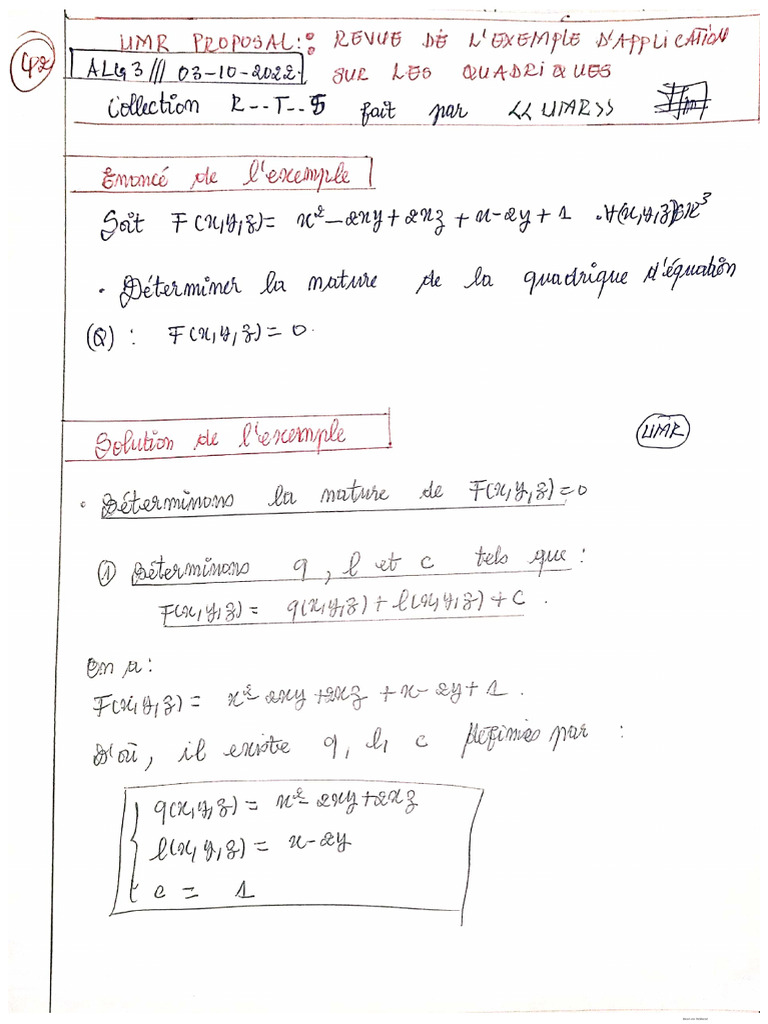 42
UMR PROPOSAL: REVUE DE L'EXEMPLE D'APPLICATION
ALG3 /// 03-10-2022 SUR LES QUADRIQUES
Collection R--T--S fait par <<UMR>>
Enoncé de l'exemple
Soit F(x,y,z)= x²-2xy+2xz+x-2y+1 .∀(x,y,z)∈ℝ³
• Déterminer la nature de la quadrique d'équation
(Q) : F(x,y,z)= 0.
Solution de l'exemple
UMR
• Déterminons la nature de F(x,y,z)=0
① Déterminons q, l et c tels que :
F(x,y,z)= q(x,y,z)+l(x,y,z)+C.
On a:
F(x,y,z)= x²-2xy+2xz+x-2y+1.
D'où, il existe q, l, c définies par :
q(x,y,z)= x²-2xy+2xz
l(x,y,z)= x-2y
c = 1